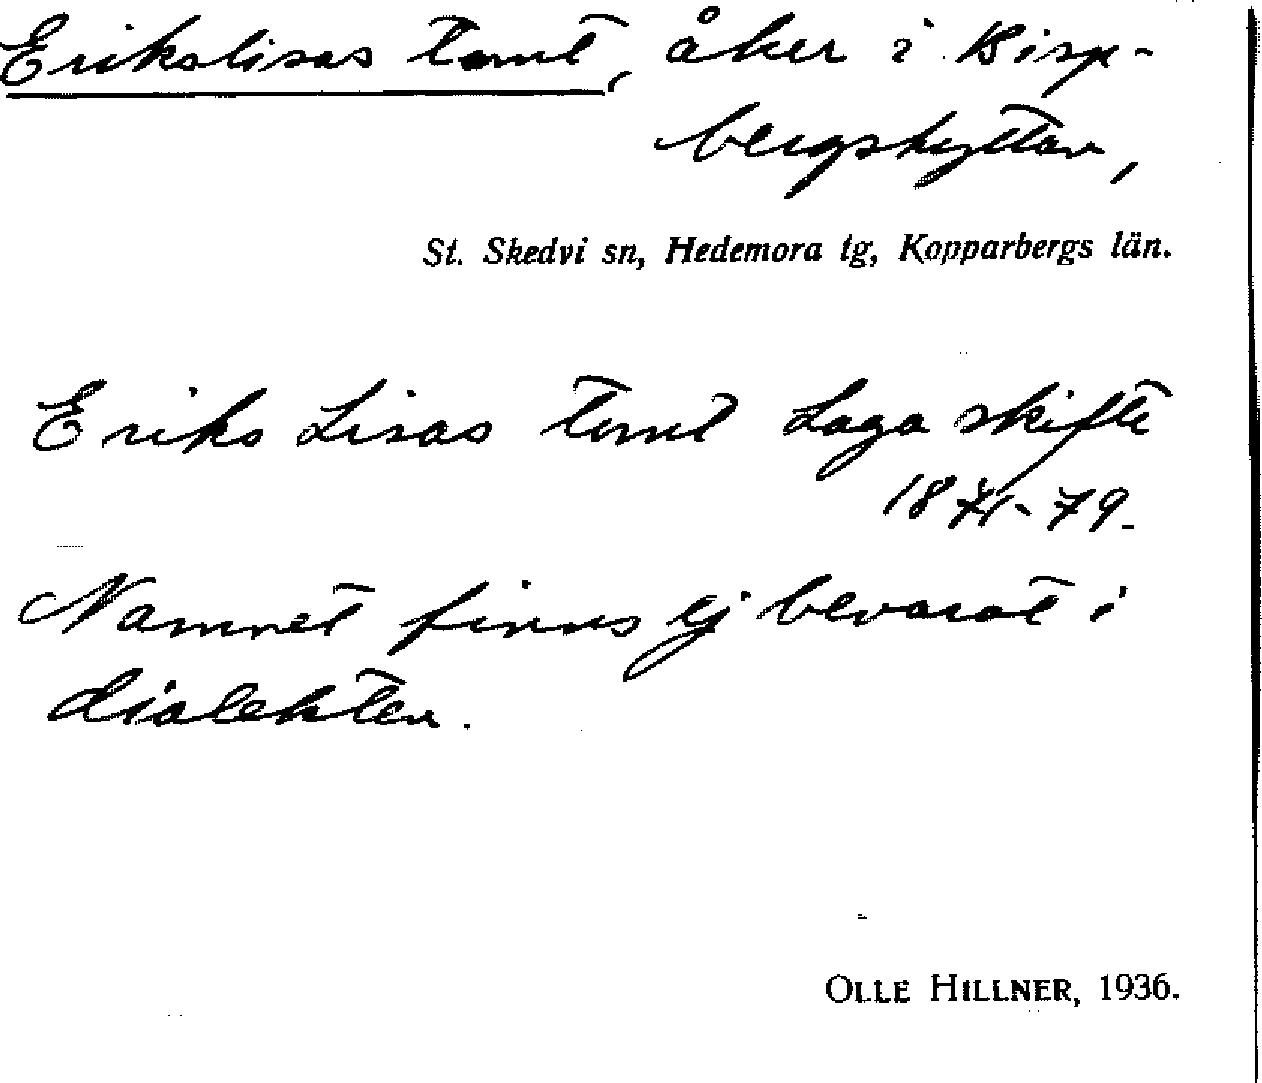 Erikslisas tomt, åker i Bisp-
bergshyttan,
St. Skedvi sn, Hedemora tg, Kopparbergs län.
Eriks Lisas tomt Laga skifte
1871-79.
Namnet finns ej bevarat i
dialekten.
OLLE HILLNER, 1936.